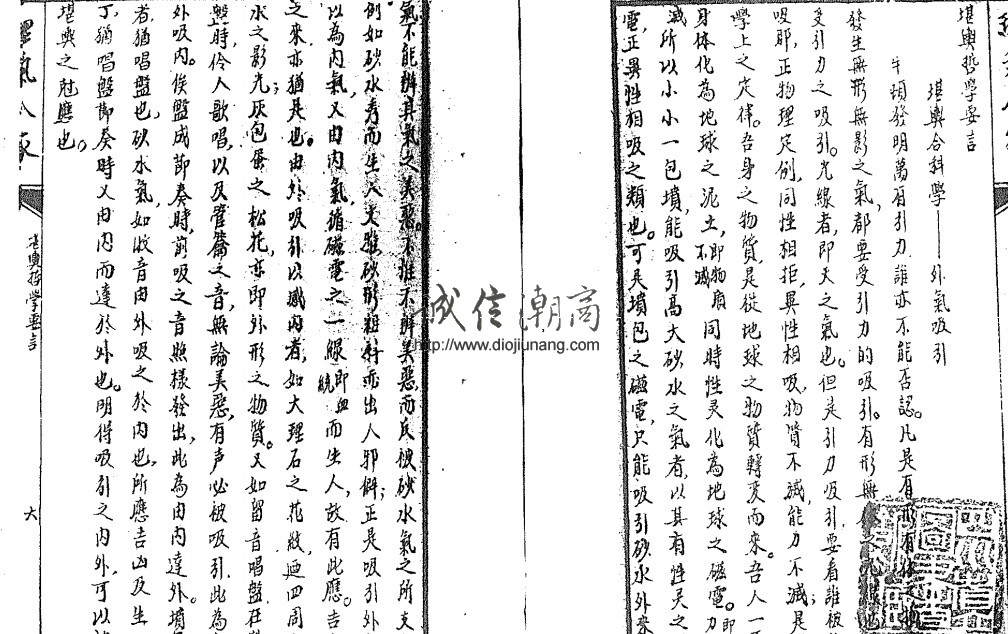 堪輿哲學要言
堪輿合科學——外氣吸引
牛頓發明萬有引力誰亦不能否認。凡是有形有体之物
發生無形無影之氣,都要受引力的吸引。有形無
受引力之吸引。光線者,即天之氣也。但是引力吸引,要看誰被
吸耶,正物理定例,同性相拒,異性相吸,物質不滅,能力不減,是
學上之定律。吾身之物質,是從地球之物質轉変而來。吾人一
身体化為地球之泥土,即物質不滅同時性灵化為地球之磁電。即
滅所以小小一包墳,能吸引高大砂水之氣者,以其有性灵之
電,正異性相吸之類也。可見墳包之磁電,只能吸引砂水外來
氣不能辨其氣之美惡。不惟不辨美惡,而反被砂水氣之所支
例如砂水秀而生人文雅,砂形粗斜而出人邪僻;正是吸引外
以為內氣,又由內氣循磁電之一線即血統而生人,故有此應。吉
之來亦猶是也。由外吸引以感內者,如大理石之花紋,迺四周
水之影光;灰包蛋之松花,亦即外形之物質。又如留音唱盤在
盤時,伶人歌唱,以及管籥之音,無論美惡,有声必被吸引。此為
外吸內。俟盤成節奏時,前吸之音照樣發出,此為由內達外。墳
者猶唱盤也,砂水氣,如收音由外吸之於內也,所應吉凶及生
丁,猶唱盤節奏時又由內而達於外也。明得吸引之內外,可以
堪輿之尅應也。
堪輿哲學要言
六
誠信潮商
http://www.diojiunang.com/